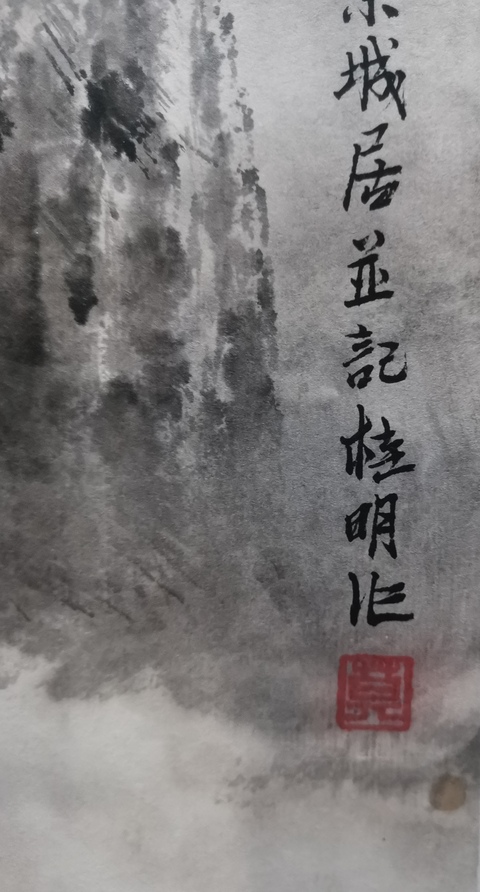 城居並記桂明作